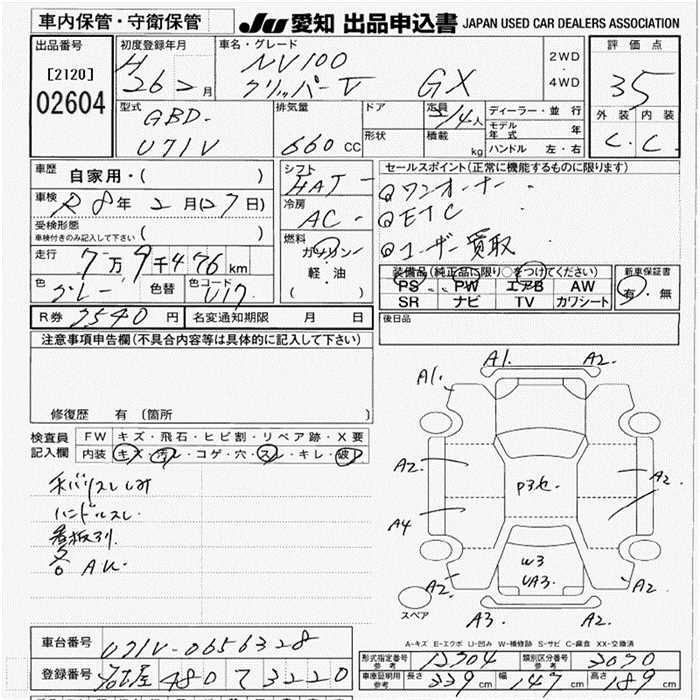 車内保管・守衛保管 JU 愛知 出品申込書 JAPAN USED CAR DEALERS ASSOCIATION
出品番号 [2120] 02604
初度登録年月 H 26 2 月
車名・グレード NV100 クリッパーV GX
2WD ・ 4WD
評価点 35
外装 C. 内装 C.
型式 GBD- U71V
排気量 660 CC
ドア 形状
定員 2/4人 積載 kg
ディーラー・並行
モデル年式 年
ハンドル 左・右
車歴 自家用・( )
車検 R8年 2月(27日)
受検形態 車検付きのみ記入して下さい ( )
走行 7万9千476km
色 グレー 色替 色コード U17
シフト HAT
冷房 AC
燃料 ガソリン 軽・油 ( )
セールスポイント(正常に機能するものに限ります)
ワンオーナー
ETC
ユーザー買取
装備品(純正品に限り○をつけてください)
PS PW エアB AW
SR ナビ TV カワシート
新車保証書 有・無
R券 7540円 名変通知期限 月 日
後日品
注意事項申告欄(不具合内容等は具体的に記入して下さい)
修復歴 有 〔箇所 〕
検査員記入欄
FW キズ・飛石・ヒビ割・リペア跡・X要
内装 キズ・汚レ・コゲ・穴・スレ・キレ・破レ
ハンドルスレ
看板別
A1. A2.
A1. A2.
A2 A2
A4
P3セ
W3
UA3.
A2 A2
A3. A2.
スペア
A-キズ E-エクボ U-凹み W-補修跡 S-サビ C-腐食 XX-交換済
車台番号 U71V-0656328
登録番号 名古屋 480 て 3220
形式指定番号 参考 15704 類別区分番号 参考 3030
車庫証明用 参考 長さ 339 cm 幅 147 cm 高さ 189 cm